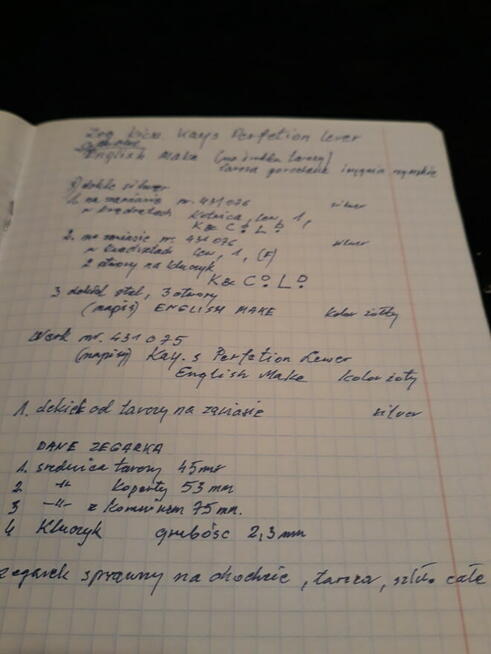 Zeg. kiesz. Kays Perfetion lever
English Make [na środku tarczy]
tarcza porcelana rzymskie
dekle silver
1. na zawiasie nr. 431076 silver
w kwadratach Kotwica, lew, 1,
K&C° L D
2. na zawiasie nr. 431076 silver
w kwadratach lew, 1, (K)
2 otwory na kluczyk
K& C° L D
3 dekiel stal, 3 otwory
(napis) ENGLISH MAKE kolor żółty
Werk nr. 431075
(napisy) Kay.s Perfetion Lewer
English Make kolor żoty
1. dekiel od tarczy na zawiasie silver
DANE ZEGARKA
1. srednica tarczy 45 mm
2. -"- koperty 53 mm
3 -"- z kominkem 75 mm.
4 Kluczyk grubośc 2,3 mm
zegarek sprawny na chodzie, tarcza, szkło całe